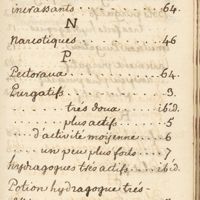 incrassants . . . . . . . . . 64.
N
Narcotiques . . . . . . . . 46
P.
Pectoraux . . . . . . . . . 64.
Purgatifs . . . . . . . . . 3.
très doux . . . . . ib.d.
plus actifs . . . . . 5
d'activité moÿenne . . . 6
un peu plus forts . . . . 7
hydragogues très actifs . ib.d.
Potion hydragogue très-